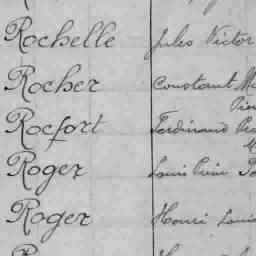 Rochelle Jules Victor
Rocher Constant
Rocfort Ferdinand
Roger Louis
Roger Henri Louis